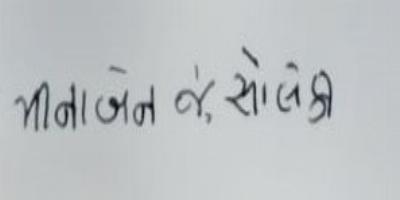 મીનાબેન જે, સોલંકી